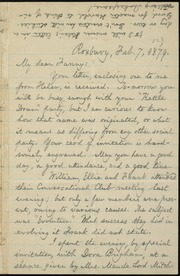 Roxbury, Feb. 7, 1879.
My dear Fanny:
Your letter enclosing one to me
from Helen, is received. To-morrow you
will be busy enough with your "Kettle
Drum" party, but I am curious to know
how that name was originated, or what
it means as differing from any other social
party. Your card of invitation is hand-
somely engraved. May you have a good
day, a good attendance, and a good time.
William, Ellie and Frank attended
their Conversational Club meeting last
evening; but only a few members were pres-
ent, owing to various causes. The subject
was "Evolution." What success they had in
evolving it Frank did not state.
I spent the evening, by special
invitation, with Bros. Bingham, at
a séance given by Mrs. Maude Lord Mitch-